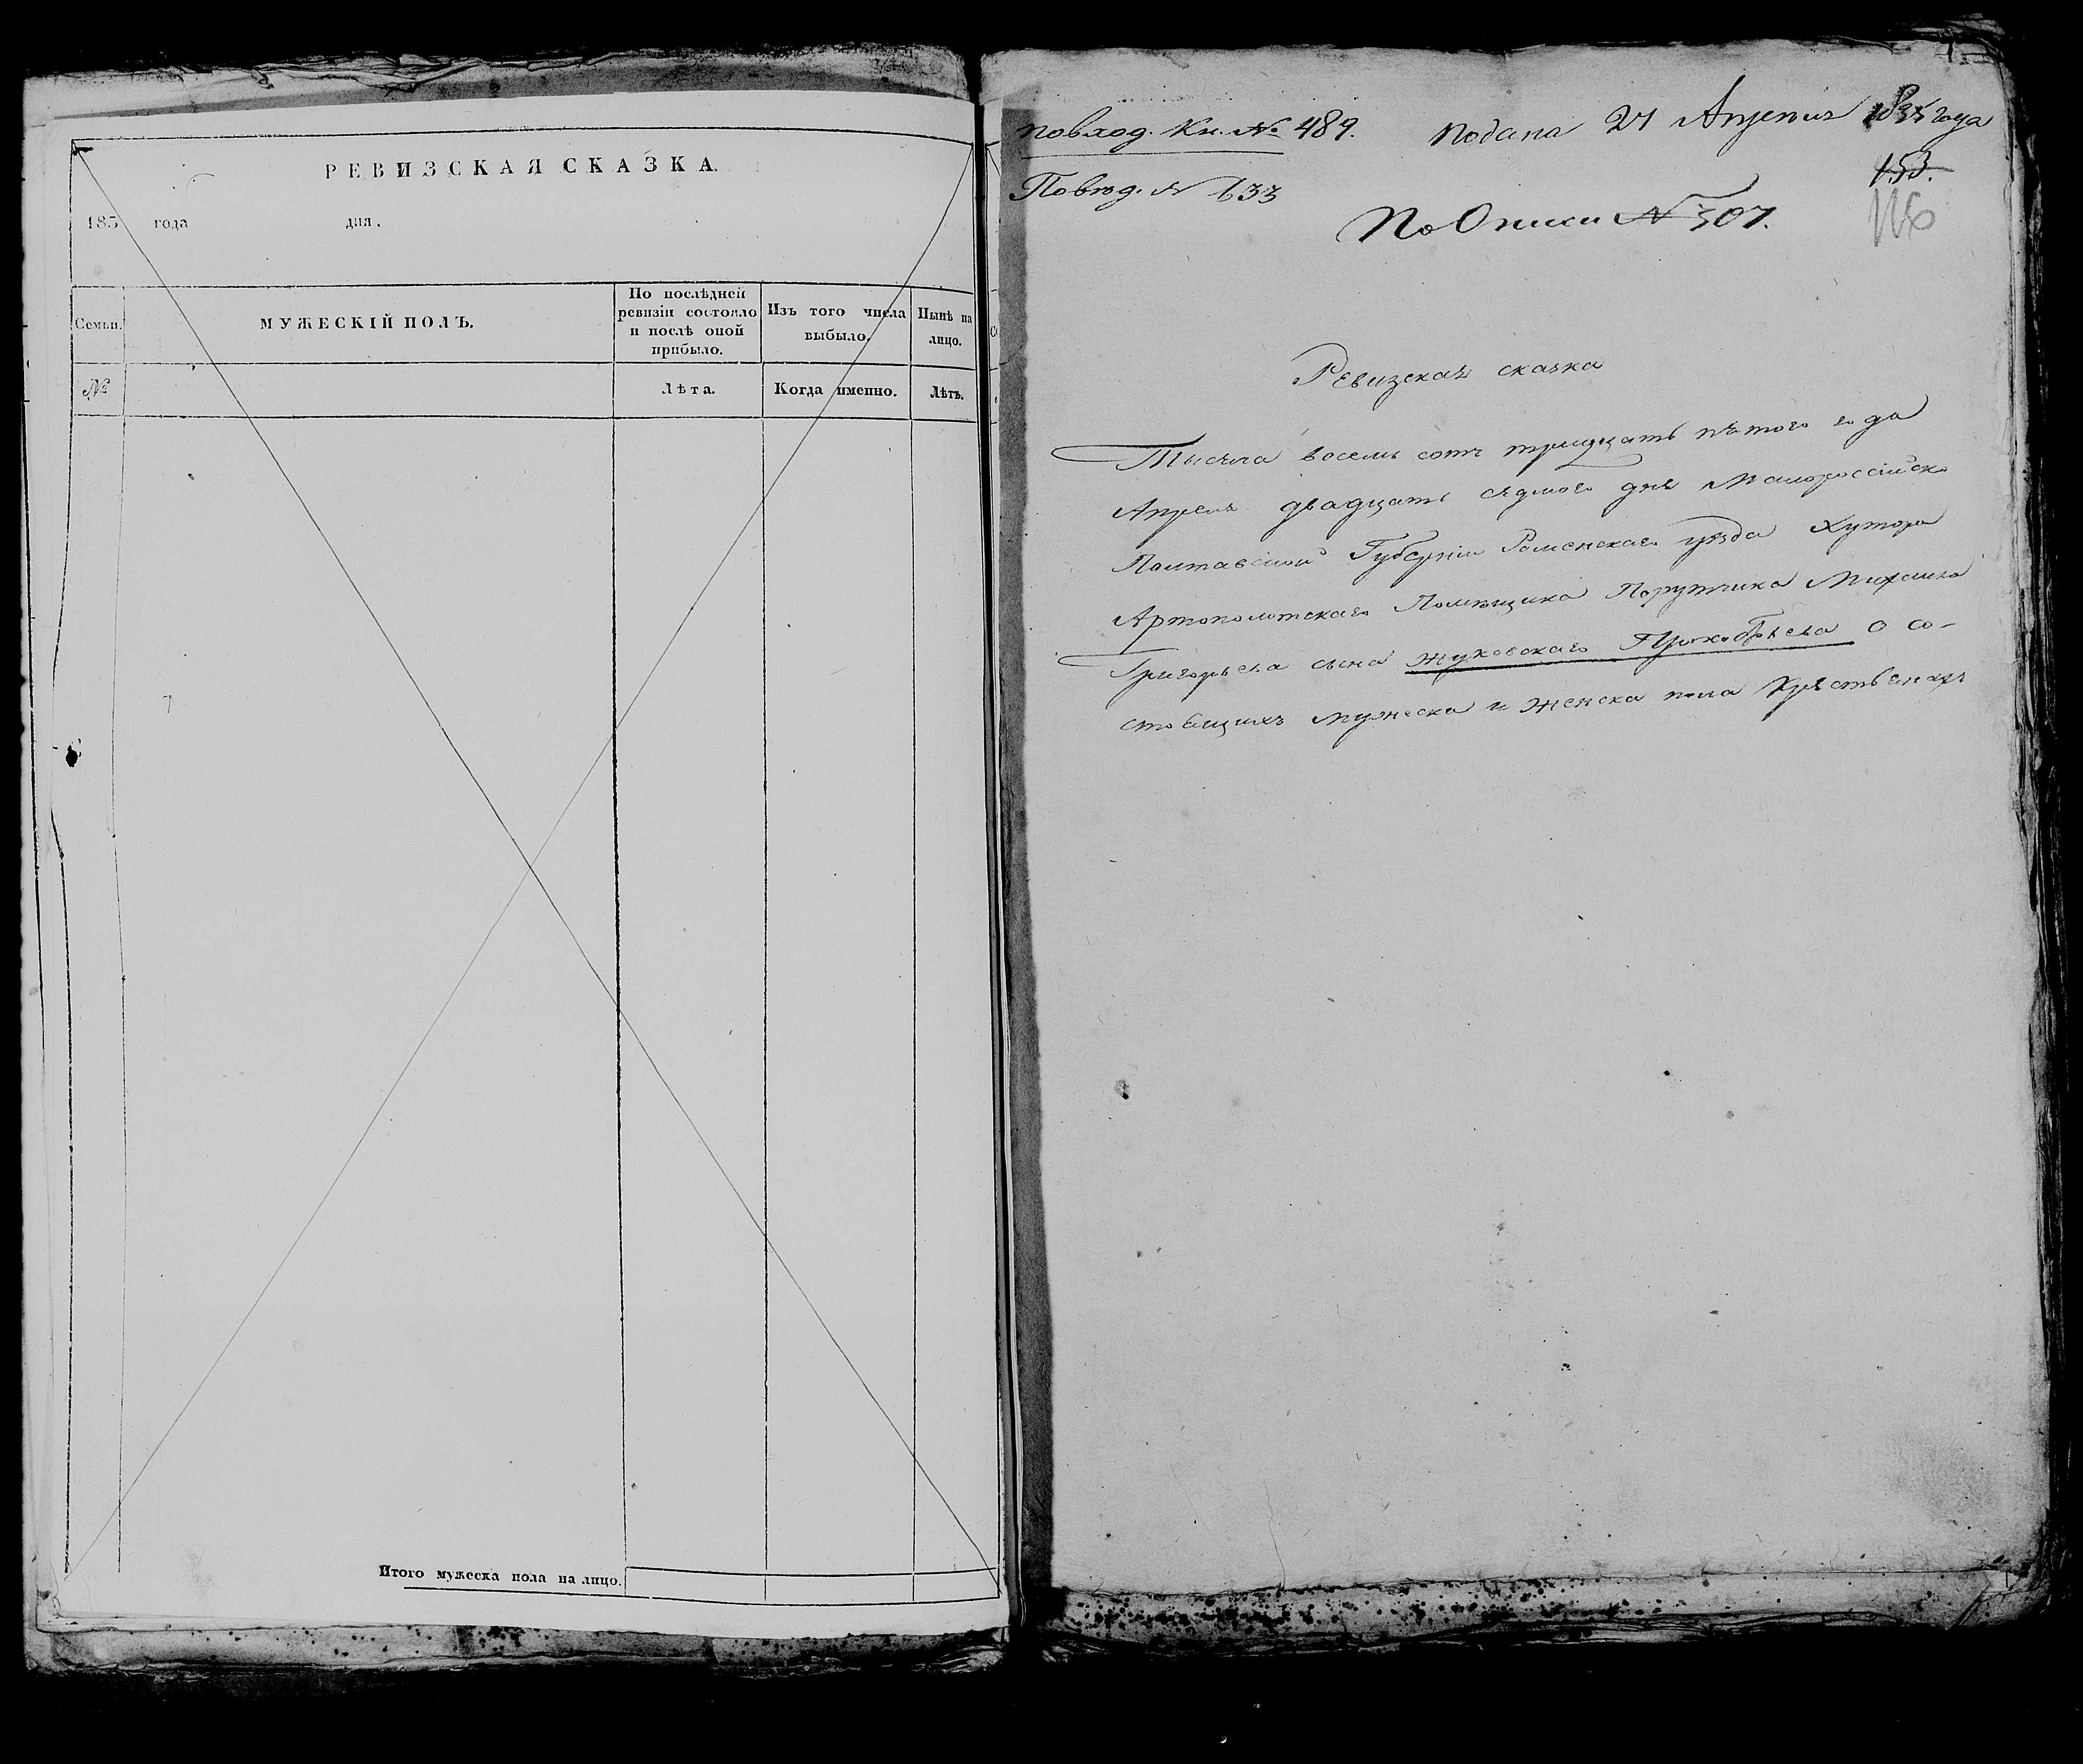 РЕВИЗСКАЯ СКАЗКА.
183 года дня.
Семьи.
МУЖЕСКІЙ ПОЛЪ.
По послѣдней
ревизіи состояло
и послѣ оной
прибыло.
Изъ того числа
выбыло.
Нынѣ на
лицо.
№
Лѣта.
Когда именно.
Лѣтъ.
Итого мужеска пола на лицо.
По вход. Кн. № 489. Подана 27 Апреля 1835 года
153.
По вход. № 633
116
По Описи № 507.
Ревизская сказка
Тысяча восемь сотъ тридцать пятого года
Апреля двадцать седмого дня Малороссійско
Полтавской Губерніи Роменскаго уѣзда Хутора
Артополотскаго Помѣщика Порутчика Михаила
Григорьева сына Жуковскаго о со-
стоящихъ мужеска и женска пола Крястьянахъ